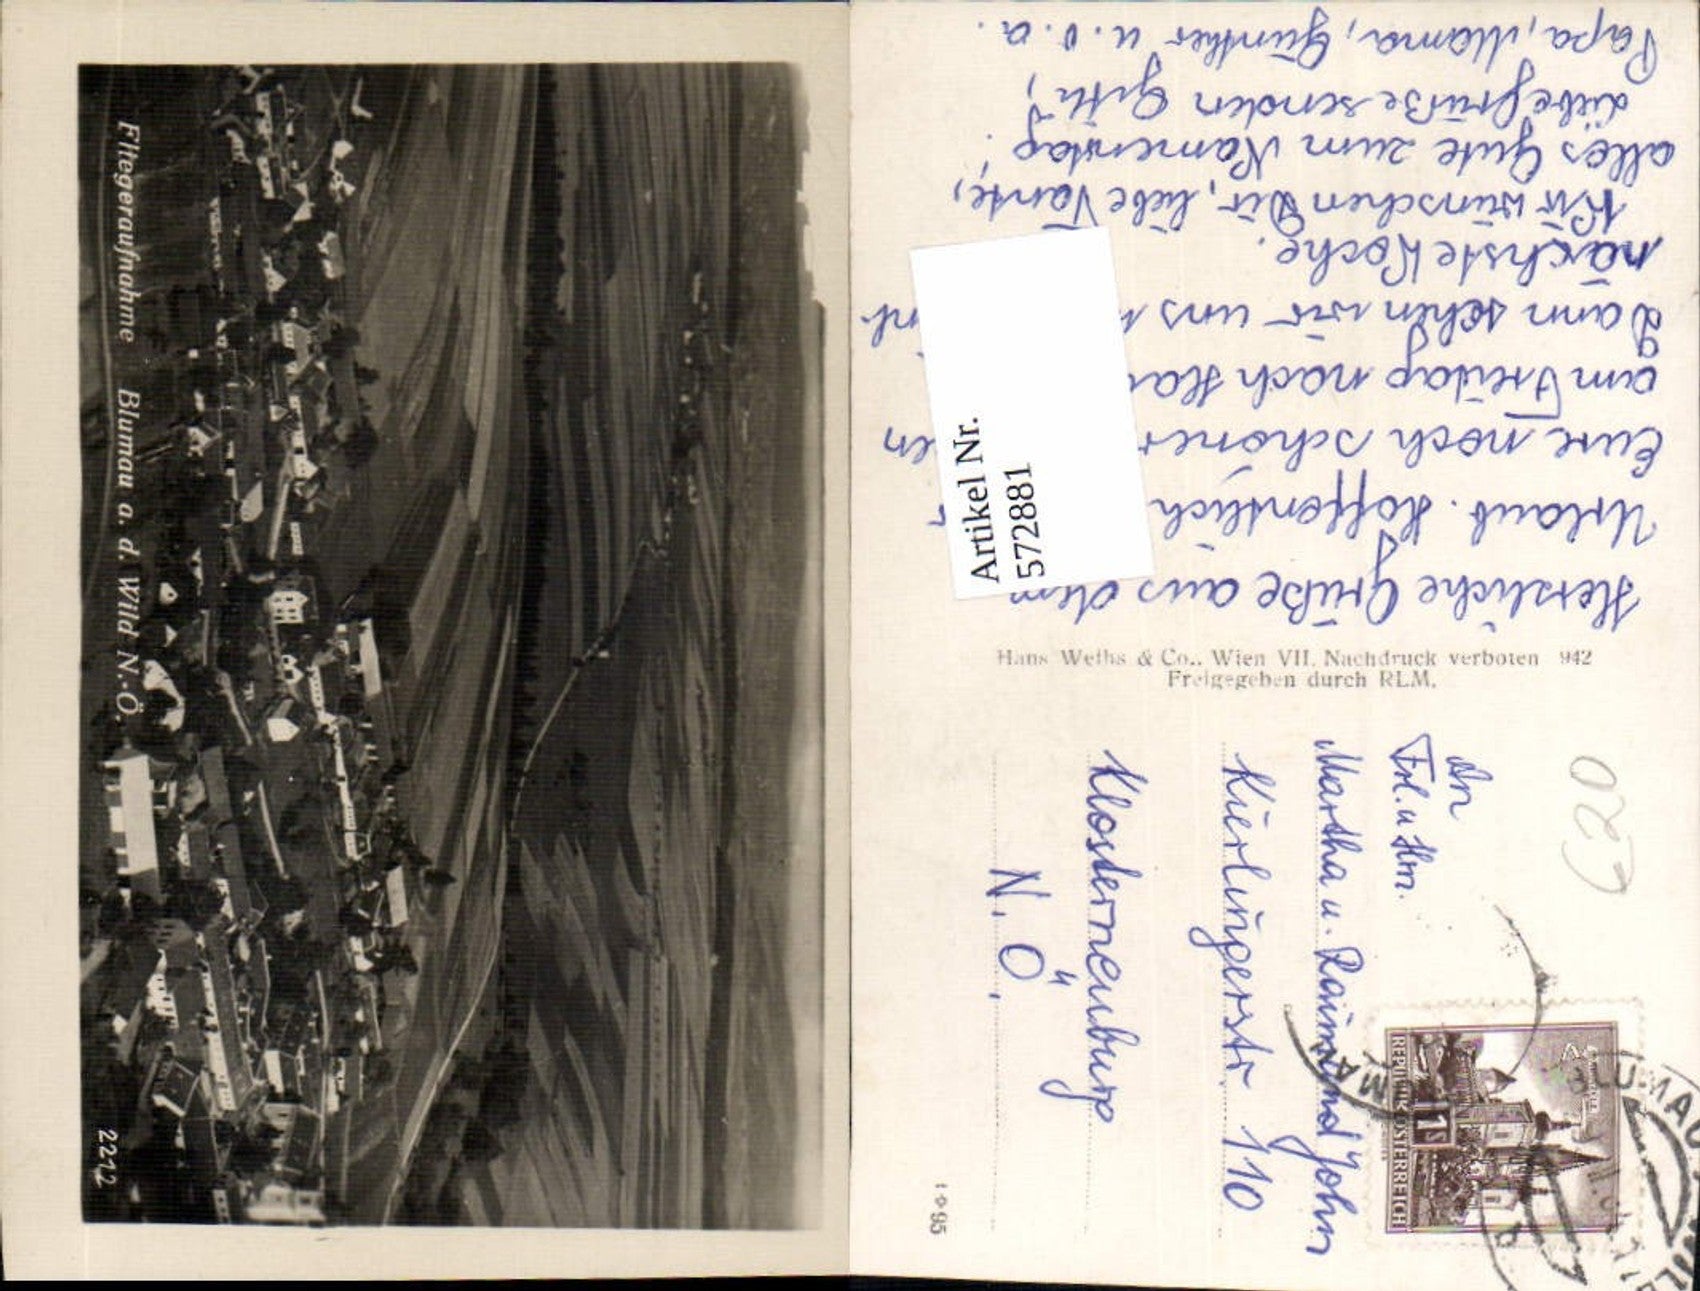 Fliegeraufnahme Blumau a. d. Wild N.-Ö.
2212
Herzliche Grüße aus dem
Urlaub. Hoffentlich
Eure noch schöner
am Freitag nach
Dann sehen wir uns
nächste Woche.
Wir wünschen Dir, liebe Tante,
alles Gute zum Namenstag!
Liebe Grüße senden Gitti,
Papa, Mama, Günther u. v. a.
Artikel Nr.
572881
Hans Weihs & Co., Wien VII. Nachdruck verboten 942
Freigegeben durch RLM.
An
Frl. u. Hrn.
Martha u. Raimund John
Kierlingerstr 110
Klosterneuburg
N. Ö.
REPUBLIK ÖSTERREICH
1 S
BLUMAU
WILD